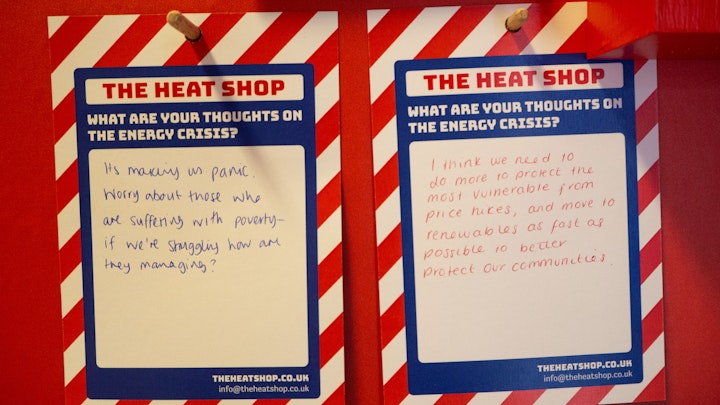 THE HEAT SHOP
WHAT ARE YOUR THOUGHTS ON
THE ENERGY CRISIS?
Its making us panic.
Worry about those who
are suffering with poverty –
if we're struggling how are
they managing?
THEHEATSHOP.CO.UK
info@theheatshop.co.uk
THE HEAT SHOP
WHAT ARE YOUR THOUGHTS ON
THE ENERGY CRISIS?
I think we need to
do more to protect the
most vulnerable from
price hikes, and move to
renewables as fast as
possible to better
protect our communities.
THEHEATSHOP.CO.UK
info@theheatshop.co.uk